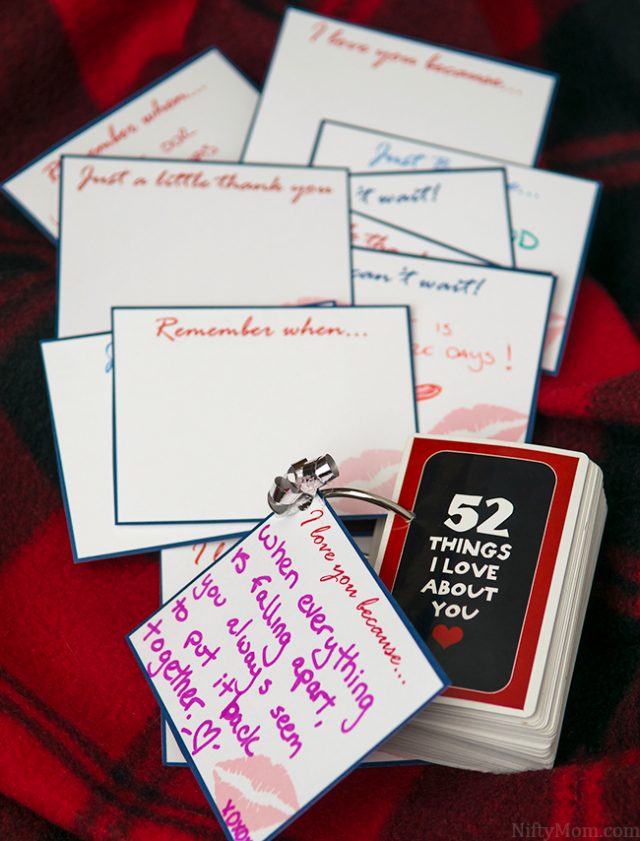 I love you because...
Remember when...
Just a little thank you
't wait!
can't wait!
IS
DAYS!
Remember when...
52
THINGS
I LOVE
ABOUT
YOU
I love you because...
when everything
is falling apart,
you always seem
to put it back
together.
xoxo
NiftyMom.com